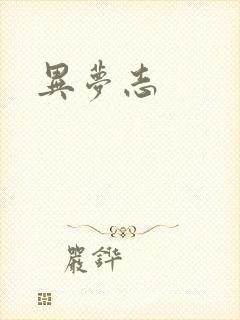 異夢志
嚴鏵